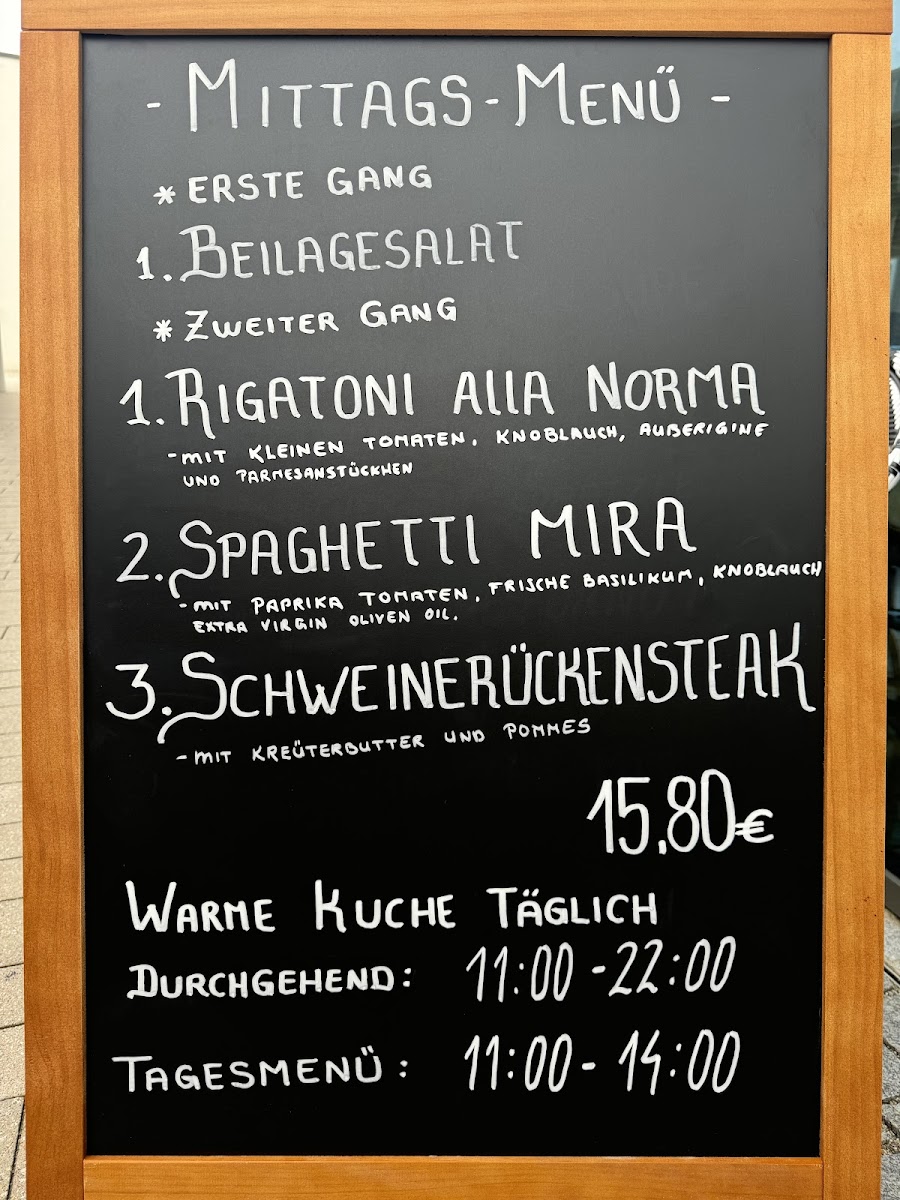 - MITTAGS-MENÜ -
* ERSTE GANG
1. BEILAGESALAT
* ZWEITER GANG
1. RIGATONI ALLA NORMA
- MIT KLEINEN TOMATEN, KNOBLAUCH, AUBERIGINE
UND PARMESANSTÜCKHEN
2. SPAGHETTI MIRA
- MIT PAPRIKA TOMATEN, FRISCHE BASILIKUM, KNOBLAUCH
EXTRA VIRGIN OLIVEN OIL.
3. SCHWEINERÜCKENSTEAK
- MIT KREÜTERBUTTER UND POMMES
15,80€
WARME KUCHE TÄGLICH
DURCHGEHEND: 11:00 - 22:00
TAGESMENÜ: 11:00 - 14:00